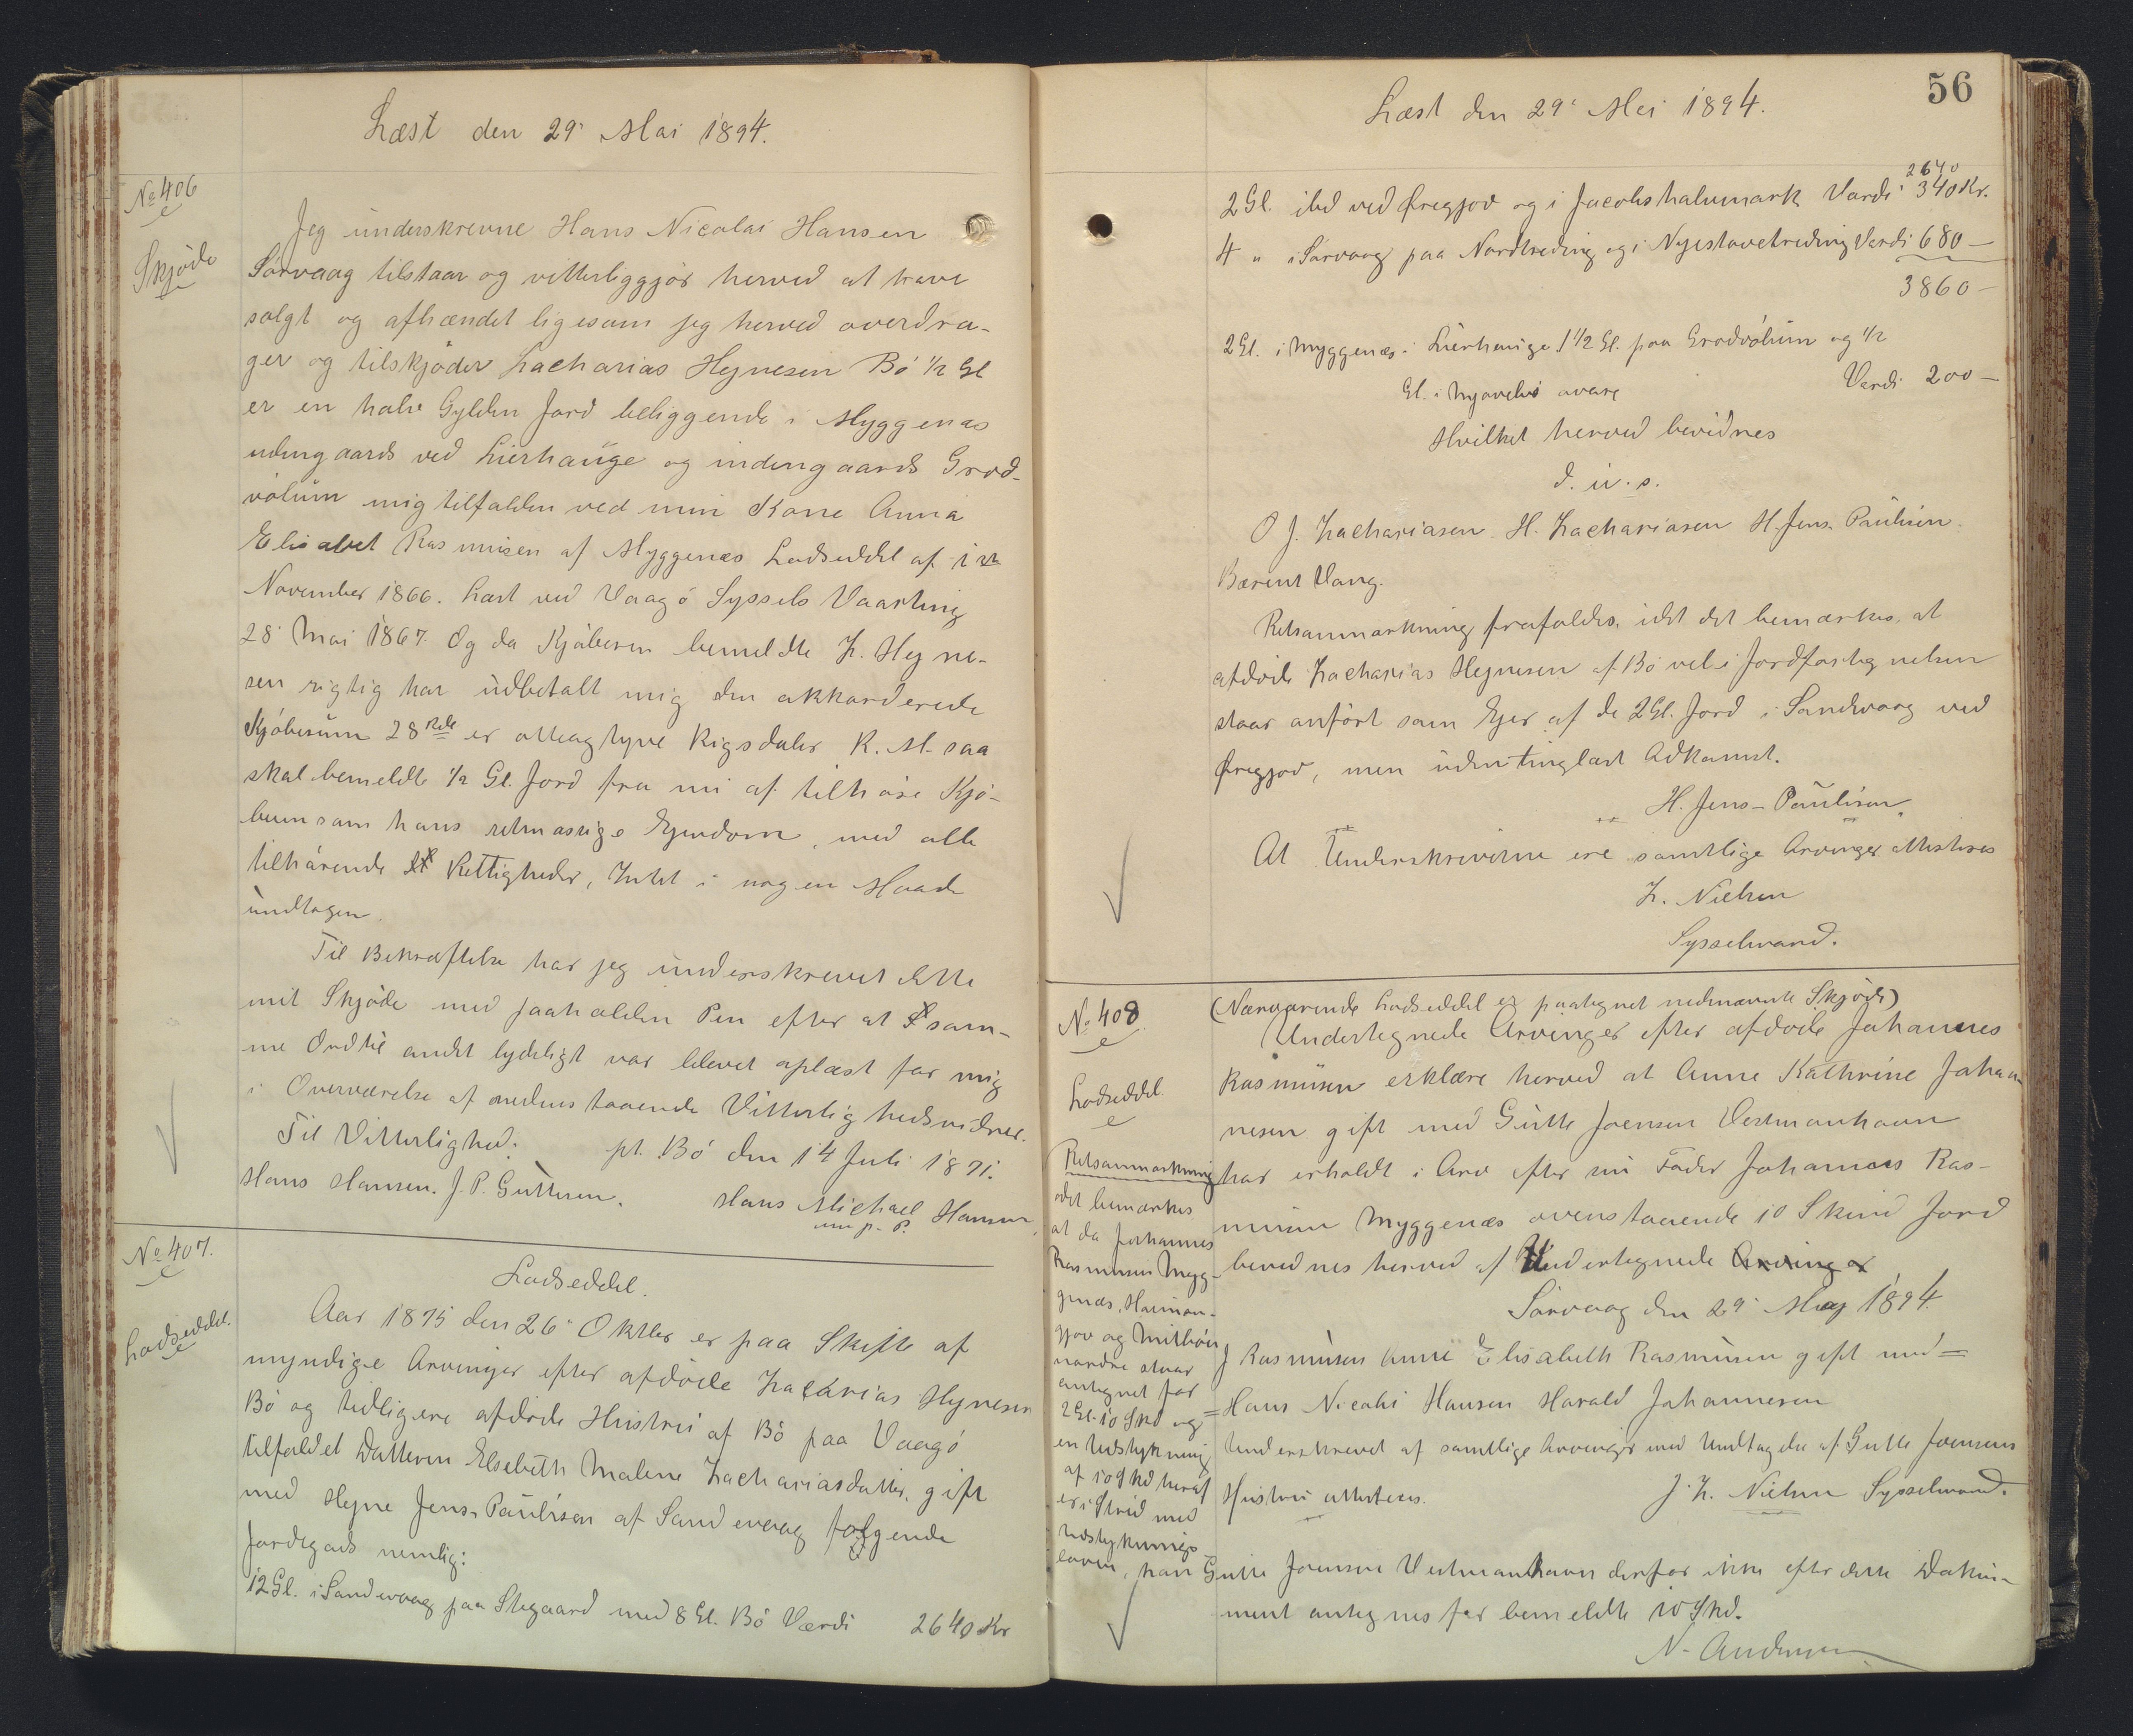 Læst den 29' Mai 1894.
No 406
Skjøde
Jeg underskrevne Hans Nicolai Hansen
Sørvaag tilstaar og vitterliggjør herved at have
solgt og afhændet ligesom jeg herved overdra-
ger og tilskjøder Zacharias Hejnesen Bø 1/2 Gl
er en halv Gylden Jord beliggende i Myggenæs
udengaards ved Lierhauge og indengaards Grød-
vølum mig tilfalden ved min Kone Anna
Elisabet Rasmusen af Myggenæs Lodseddel af 1ste
November 1866. Læst ved Vaagø Syssels Vaarting
28' Mai 1867. Og da Kjøberen bemeldte Z. Hejne-
sen rigtig har udbetalt mig den akkorderede
Kjøbesum 28 Rdl er otteogtyve Rigsdaler R. M. saa
skal bemeldte 1/2 Gl. Jord fra nu af tilhøre Kjø-
beren som hans retmæssige Ejendom, med alle
tilhørende Rettigheder, Intet i nogen Maade
undtagen.
Til Bekræftelse har jeg underskrevet dette
mit Skjøde med paaholden Pen efter at sam-
me Ord til andet lydeligt var blevet oplæst for mig
i Overværelse af nedenstaaende Vitterlighedsvidner.
Til Vitterlighed: pt. Bø den 14 Juli 1871.
Hans Hansen. J. P. Guttesen. Hans Michael Hansen
m. p. P.
No 407.
Lodseddel.
Lodseddel.
Aar 1875 den 26' Oktbr er paa Skifte af
myndige Arvinger efter afdøde Zacarias Hejnesen
Bø og tidligere afdøde Hustru af Bø paa Vaagø
tilfaldet Datteren Elsebeth Malene Zachariasdatter, gift
med Hejne Jens-Paulisen af Sandevaag følgende
Jordegods nemlig:
12 Gl. i Sandevaag paa Stegaard med 8 Gl. Bø Værdi 2640 Kr
56
Læst den 29' Mai 1894.
2640
2 Gl. ibd ved Øregjov og i Jacobshalvmark Værdi 340 Kr.
4 " i Sørvaag paa Nordtreding og i Nyestovetreding Værdi 680 -
3860 -
2 Gl. i Myggenæs i Lierhauge 1 1/2 Gl. paa Grødvølum og 1/2
Gl. i Værdi 200 -
Hvilket herved bevidnes
d. u. s.
O J. Zachariasen. H. Zachariasen H. Jens-Paulisen
Bærent Vang.
Retsanmærkning frafaldes, idet det bemærkes, at
afdøde Zacharias Hejnesen af Bø vel i Jordfortegnelsen
staar anført som Ejer af de 2 Gl. Jord i Sandevaag ved
Øregjov, men uden tinglæst Adkomst.
H. Jens-Paulisen.
At Underskriverne ere samtlige Arvinger attesteres
Z. Nielsen
Sysselmand.
No 408
Lodseddel.
(Nærværende Lodseddel er paategnet nedenævnte Skjøde)
Undertegnede Arvinger efter afdøde Johannes
Rasmusen erklære herved at Anne Kathrine Johan
nesen gift med Gutte Joensen Vestmanhavn
har erholdt i Arv efter sin Fader Johannes Ras-
musen Myggenæs ovenstaaende 10 Skind Jord
bevidnes herved af Undertegnede Arvinger
Sørvaag den 29' Maj 1894.
J Rasmusen Anne Elisabeth Rasmusen gift med =
= Hans Nicolai Hansen Harald Johannesen
Underskrevet af samtlige Arvinger med Undtagelse af Gutte Joensens
Hustru attesteres. J. Z. Nielsen Sysselmand.
Retsanmærkning
idet bemærkes
at da Johannes
Rasmusen Myg-
genæs,
gjov og
nordre staar
antegnet for
2 Gl. 10 Skd og
en Udstykning
af 10 Skd heraf
er i Strid med
Udstyknings-
loven, kan Gutte Joensen Vestmanhavn derfor ikke efter dette Doku-
ment antegnes for bemeldte 10 Skd.
N. Andersen